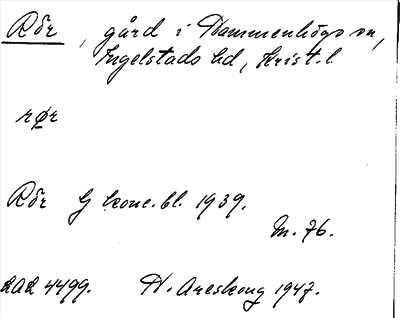 Rör, gård i Hammenhögs sn,
Ingelstads hd, Krist. l
rør
Rör G konc. bl. 1939.
m. 76.
LAL 4499. H. Areskoug 1947.